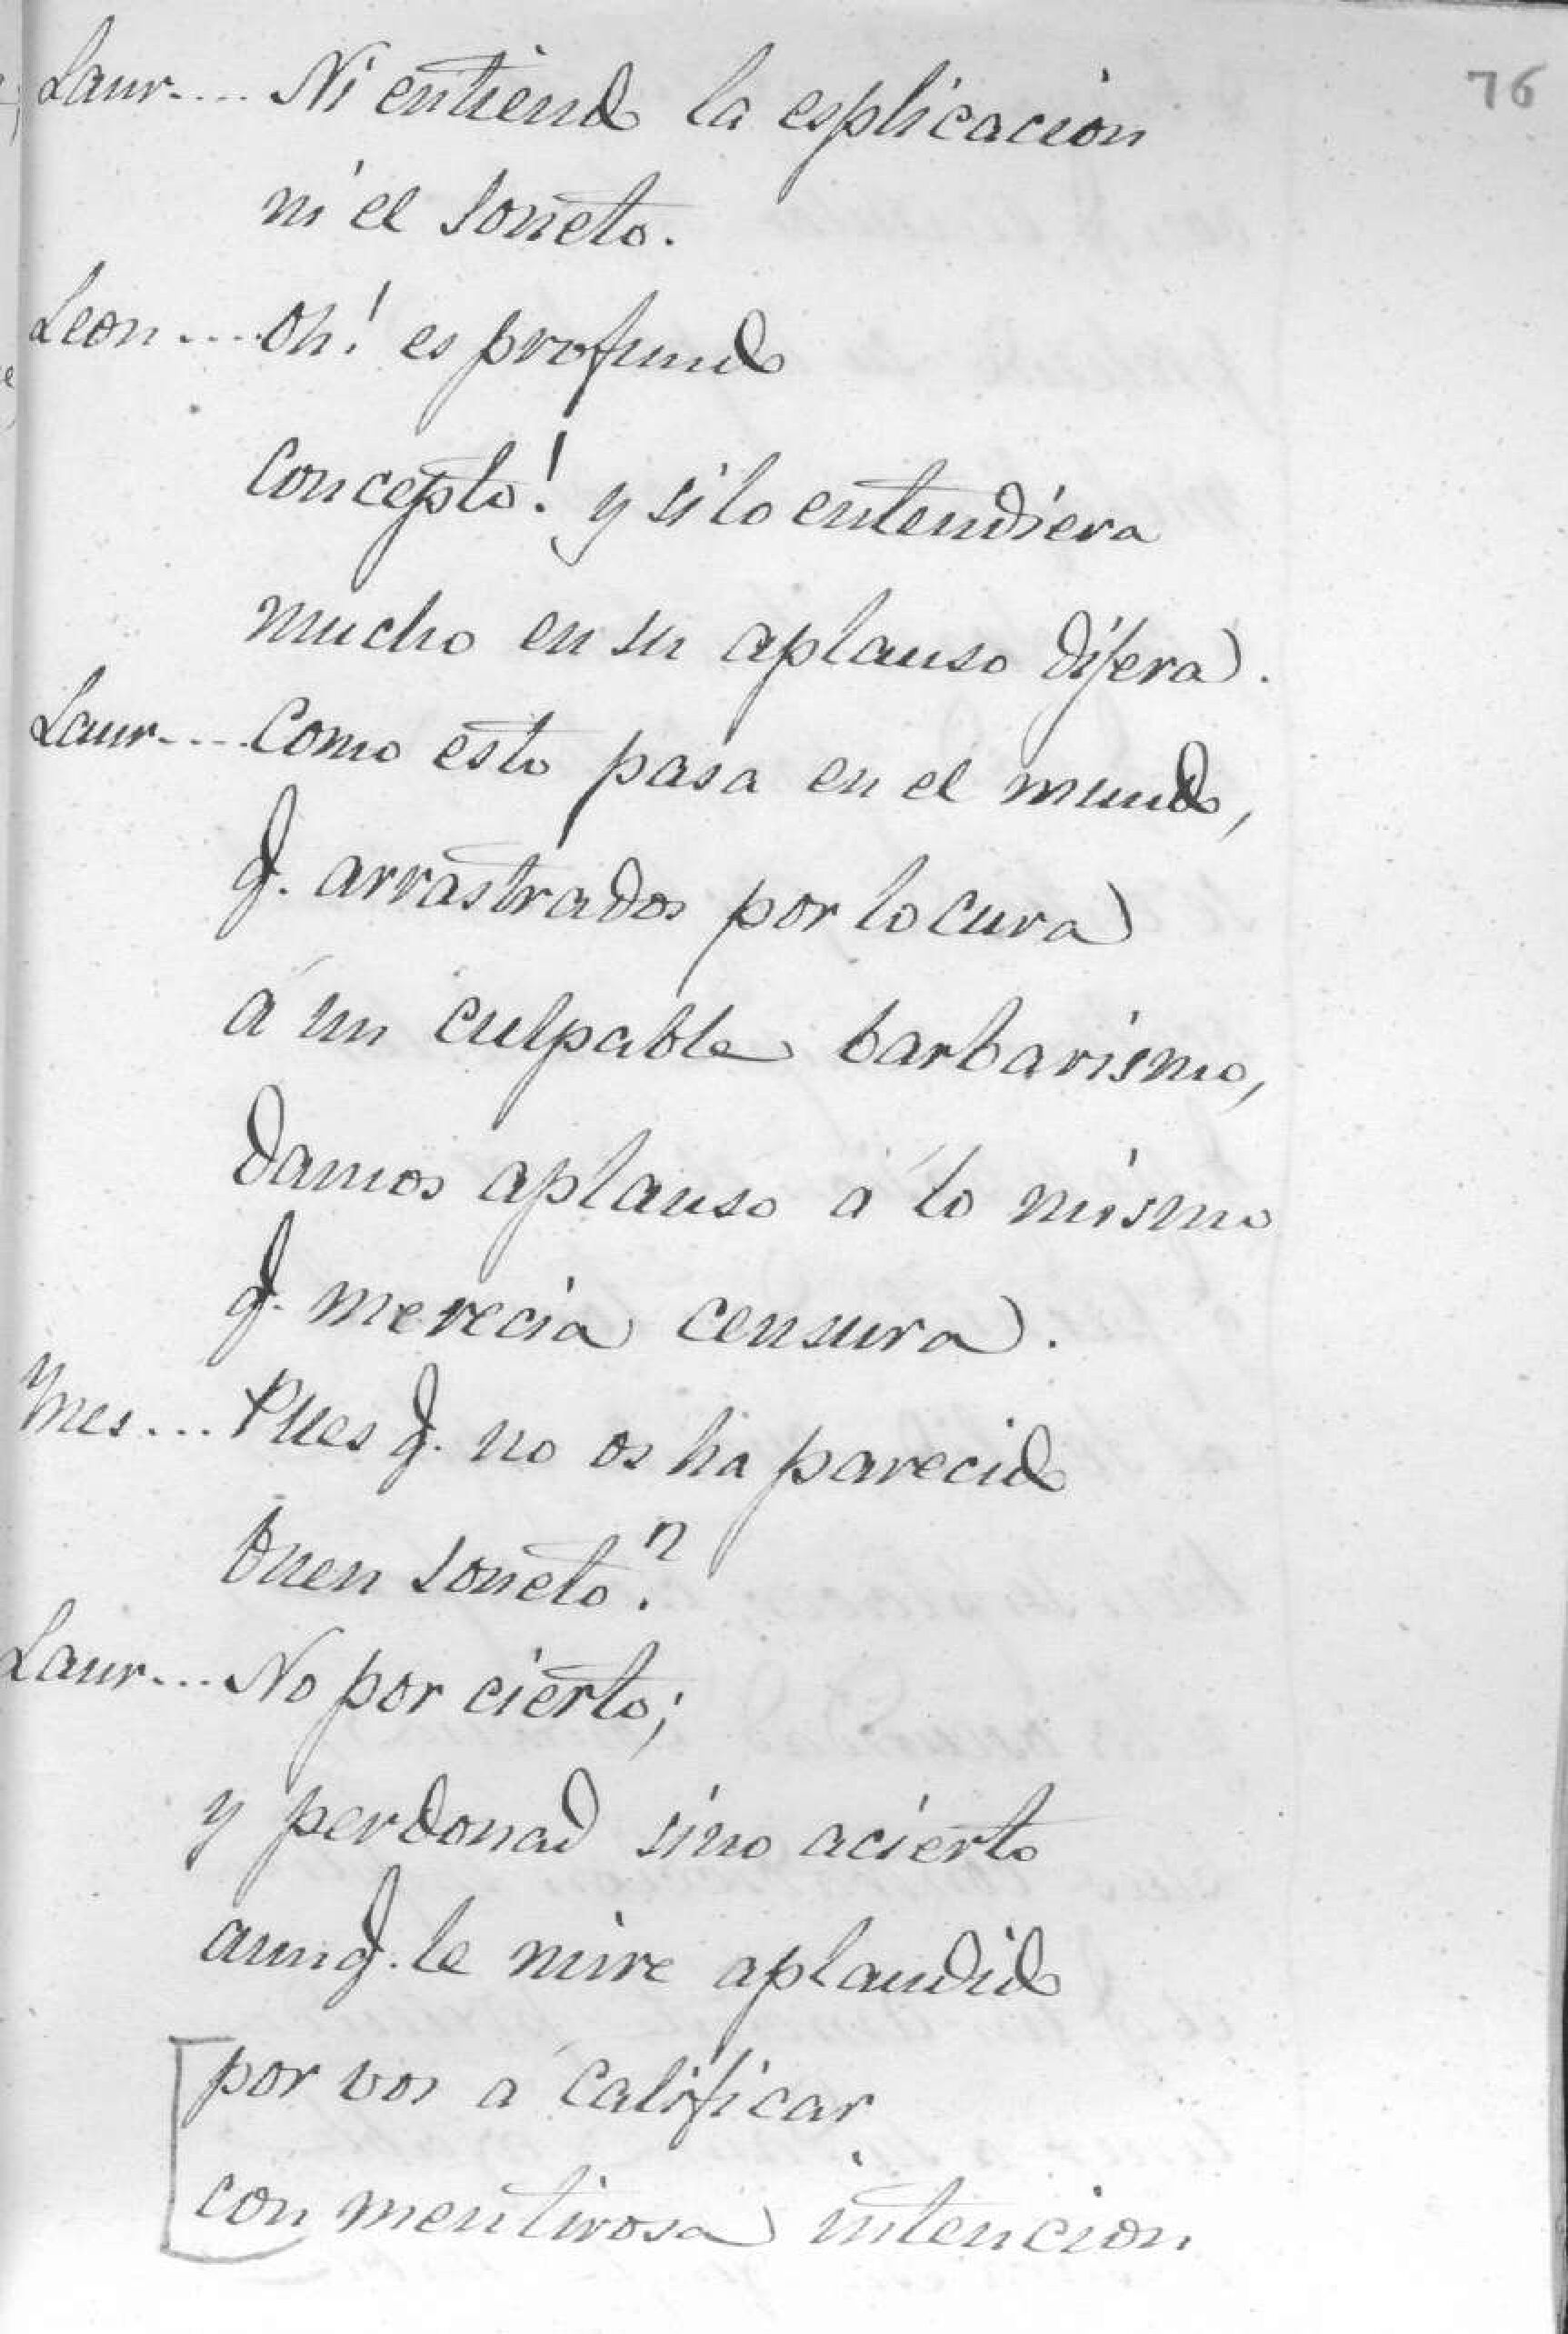 76
Laur.... Ni entiendo la esplicacion
ni el soneto.
Leon.... Oh! es profundo
concepto! y si lo entendiera
mucho en su aplauso difera.
Laur.... Como esto pasa en el mundo,
q. arrastrados por locura
á un culpable barbarismo,
damos aplauso á lo mismo
q. merecia censura.
Ynes... Pues q. no os ha parecido
buen soneto?
Laur... No por cierto;
y perdonad sino acierto
aunq. le mire aplaudido
por vos á calificar
con mentirosa intencion